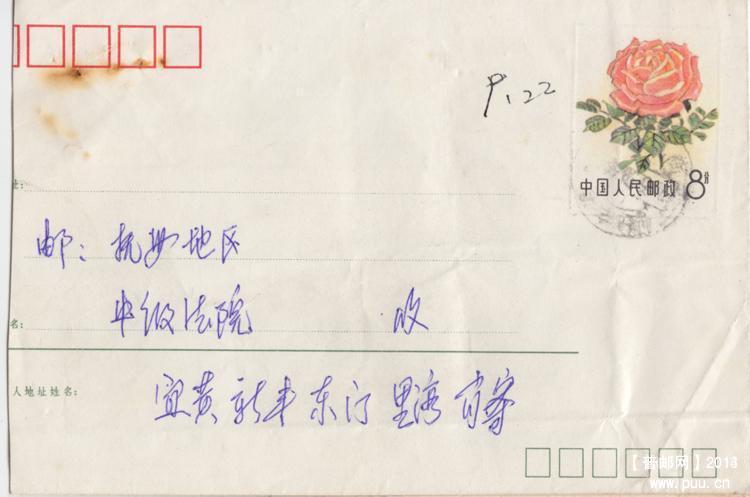 9.22
中国人民邮政 8分
址:
邮: 抚州地区
名:
中级法院 收
人地址姓名:
宜黄新丰东门里湾 肖寄
【普邮网】2013
www.puu.cn